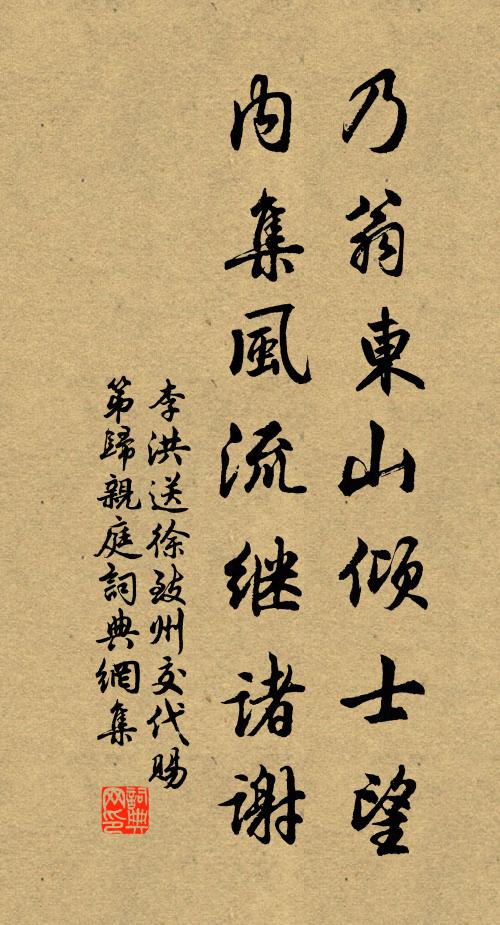 乃翁東山傾士望
内集風流継諸謝
李洪送徐致州交代賜
第歸親庭詞典網集
詞典
网印